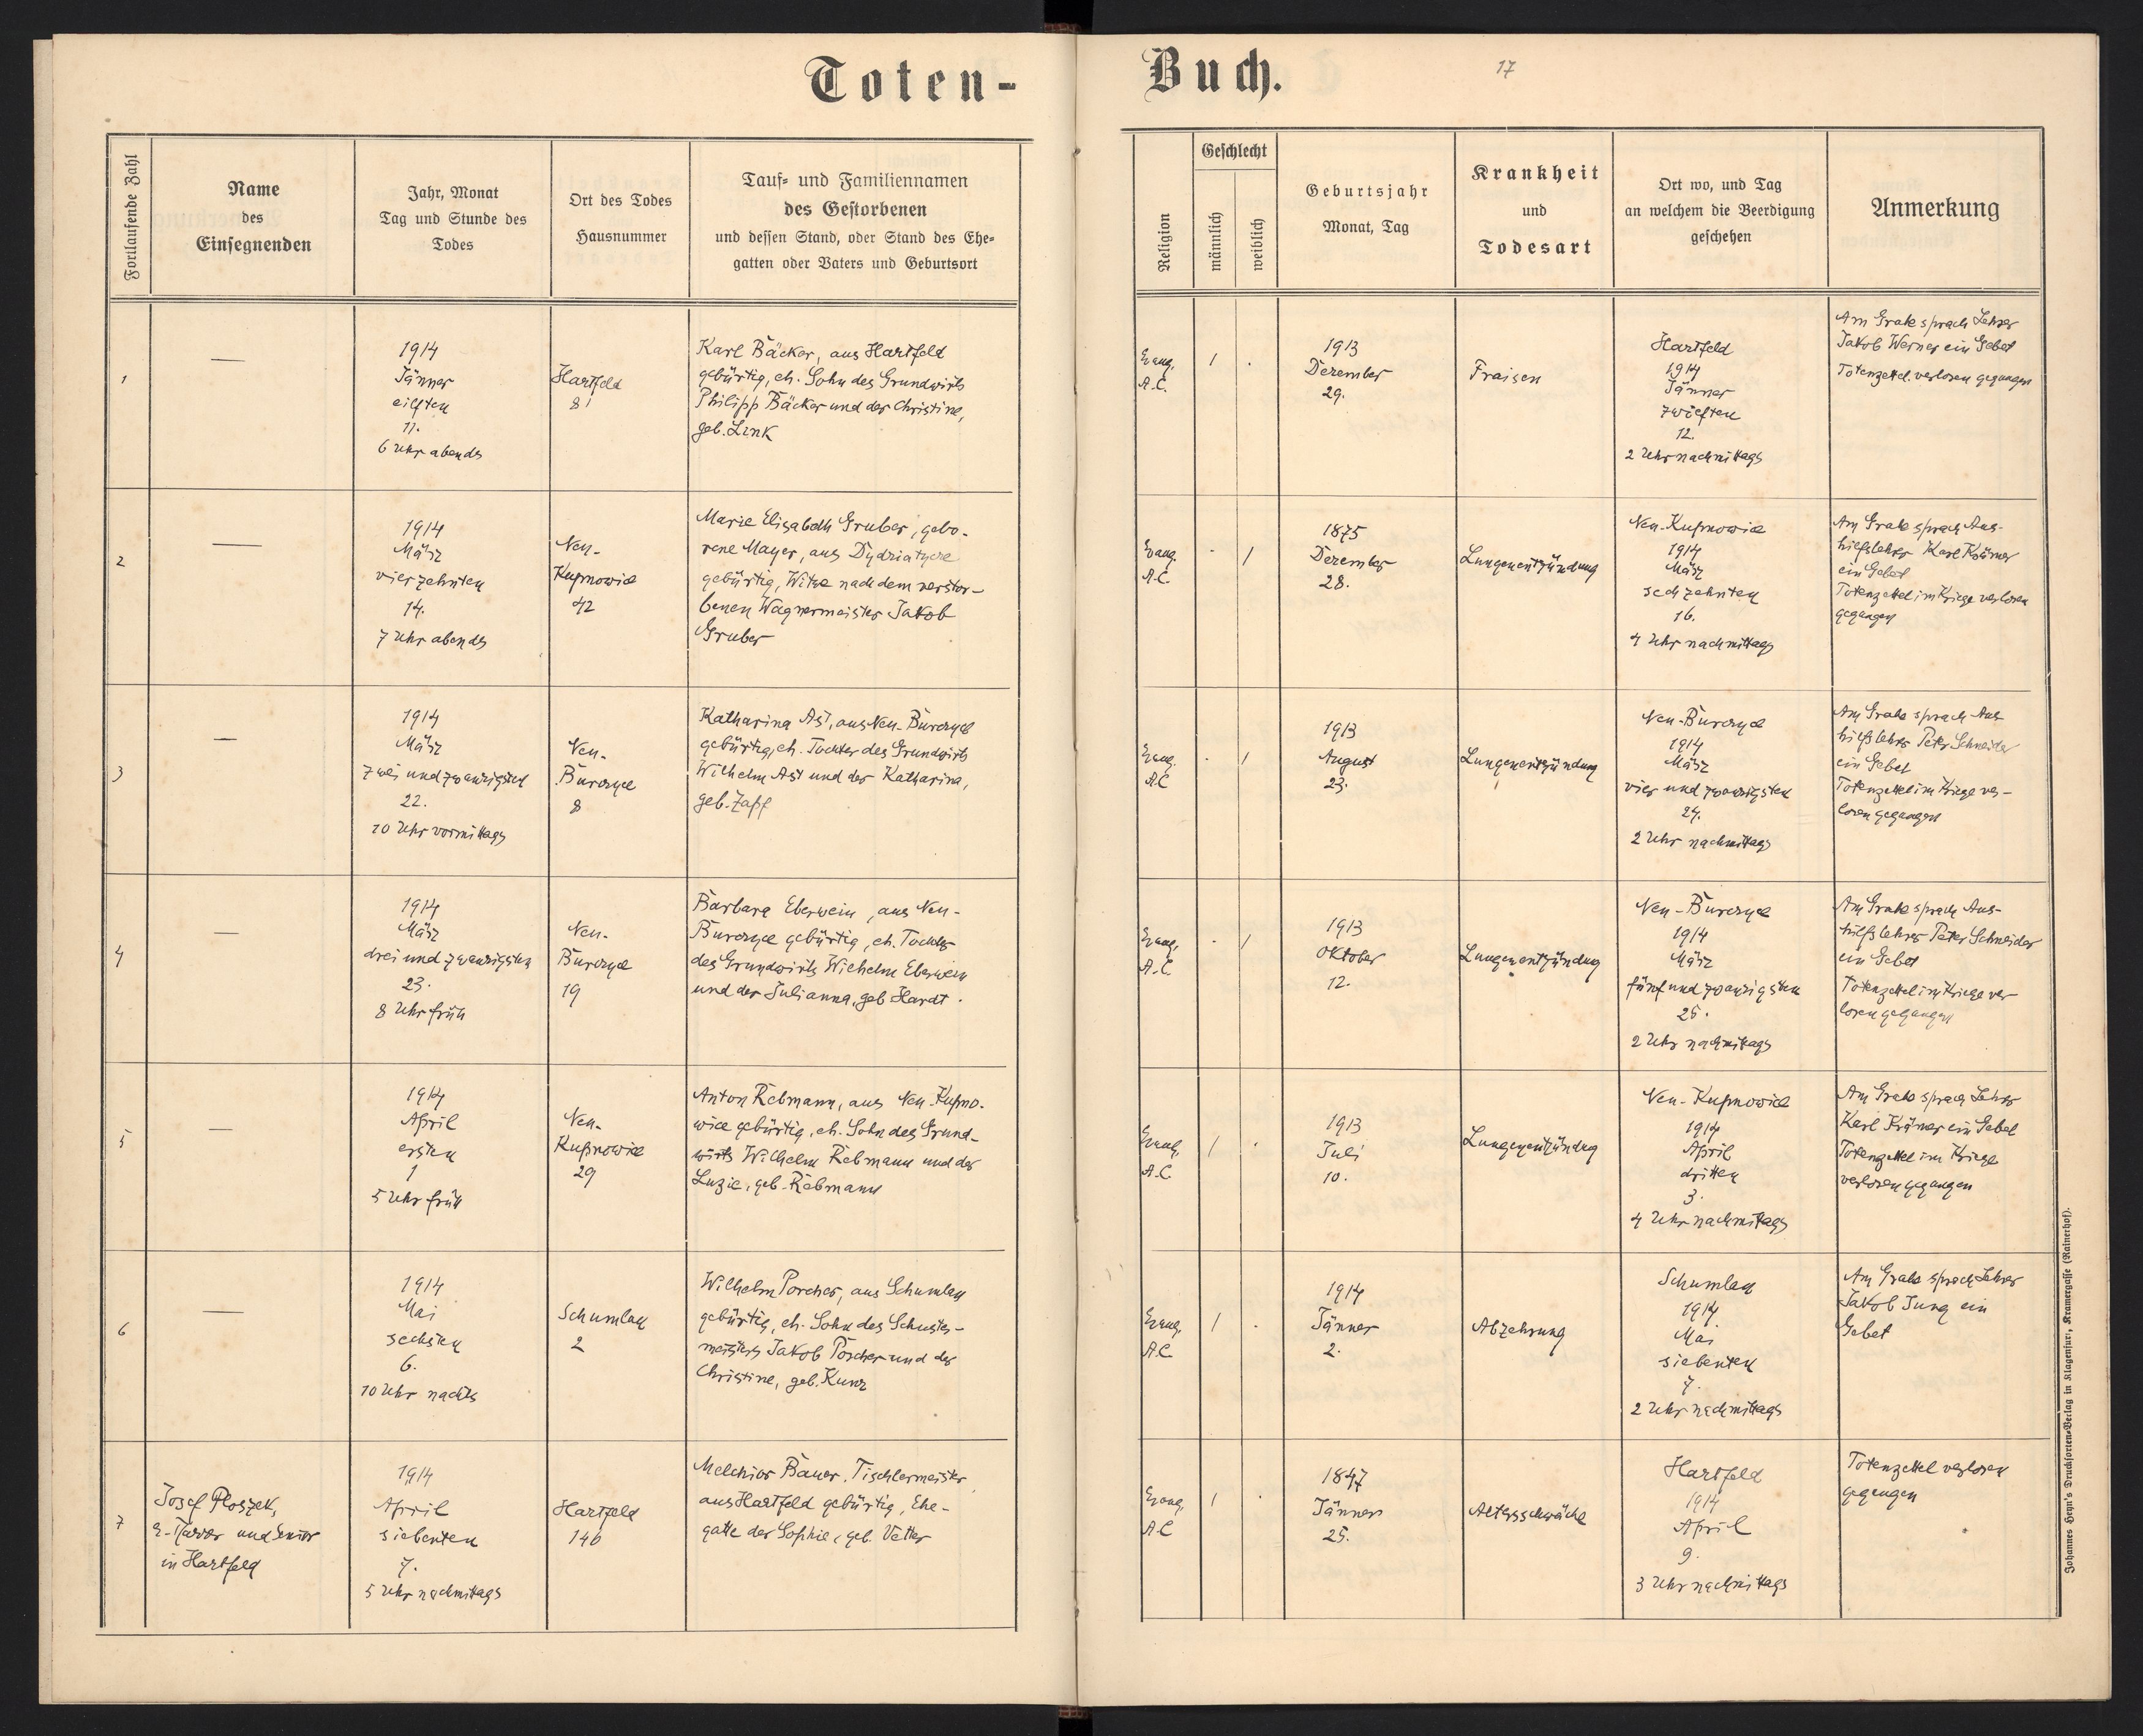 Toten-
Buch.
17
Fortlaufende Zahl
Name
des
Einsegnenden
Jahr, Monat
Tag und Stunde des
Todes
Ort des Todes
Hausnummer
Tauf- und Familiennamen
des Gestorbenen
und dessen Stand, oder Stand des Ehe-
gatten oder Vaters und Geburtsort
Religion
Geschlecht
männlich
weiblich
Geburtsjahr
Monat, Tag
Krankheit
und
Todesart
Ort wo, und Tag
an welchem die Beerdigung
geschehen
Anmerkung
1
—
1914
Jänner
eilften
11.
6 Uhr abends
Hartfeld
81
Karl Bäcker, aus Hartfeld
gebürtig, eh. Sohn des Grundwirts
Philipp Bäcker und der Christine,
geb. Link
Evang.
A.C.
1
.
1913
Dezember
29.
Fraisen
Hartfeld
1914
Jänner
zwölften
12.
2 Uhr nachmittags
Am Grabe sprach Lehrer
Jakob Werner ein Gebet
Totenzettel verloren gegangen
2
—
1914
März
vierzehnten
14.
7 Uhr abends
Neu-
Kupnowice
42
Marie Elisabeth Gruber, gebo-
rene Mayer, aus
gebürtig, Witwe nach dem verstor-
benen Wagnermeister Jakob
Gruber
Evang.
A.C.
.
1
1875
Dezember
28.
Lungenentzündung
Neu-Kupnowice
1914
März
sechzehnten
16.
4 Uhr nachmittags
Am Grabe sprach Aus-
hilfslehrer Karl Krämer
ein Gebet
Totenzettel im Kriege verloren
gegangen
3
—
1914
März
zweiundzwanzigsten
22.
10 Uhr vormittags
Neu-
Burczyce
8
Katharina Ast, aus Neu-Burczyce
gebürtig, eh. Tochter des Grundwirts
Wilhelm Ast und der Katharina,
geb. Zapf
Evang.
A.C
.
1
1913
August
23.
Lungenentzündung
Neu-Burczyce
1914
März
vier und zwanzigsten
24.
2 Uhr nachmittags
Am Grabe sprach Aus-
hilfslehrer Peter Schneider
ein Gebet
Totenzettel im Kriege ver-
loren gegangen
4
—
1914
März
drei und zwanzigsten
23.
8 Uhr früh
Neu-
Burczyce
19
Barbara Eberwein, aus Neu-
Burczyce gebürtig, eh. Tochter
des Grundwirts Wilhelm Eberwein
und der Julianna, geb Hardt.
Evang.
A.C.
.
1
1913
Oktober
12.
Lungenentzündung
Neu-Burczyce
1914
März
fünf und zwanzigsten
25.
2 Uhr nachmittags
Am Grabe sprach Aus-
hilfslehrer Peter Schneider
ein Gebet
Totenzettel im Kriege ver-
loren gegangen
5
—
1914
April
ersten
1
5 Uhr früh
Neu-
Kupnowice
29
Anton Rebmann, aus Neu-Kupno-
wice gebürtig, eh. Sohn des Grund-
wirts Wilhelm Rebmann und der
Luzie, geb. Rebmann
Evang.
A.C
1
.
1913
Juli
10.
Lungenentzündung
Neu-Kupnowice
1914
April
dritten
3.
4 Uhr nachmittags
Am Grabe sprach Lehrer
Karl Krämer ein Gebet
Totenzettel im Kriege
verloren gegangen
6
—
1914
Mai
sechsten
6.
10 Uhr nachts
Schumlau
2
Wilhelm Porcher, aus Schumlau
gebürtig, eh. Sohn des Schuster-
meisters Jakob Porcher und der
Christine, geb. Kunz
Evang.
A.C
1
.
1914
Jänner
2.
Abzehrung
Schumlau
1914
Mai
siebenten
7.
2 Uhr nachmittags
Am Grabe sprach Lehrer
Jakob Jung ein
Gebet
7
Josef Ploszek,
e. Pfarrer und Senior
in Hartfeld
1914
April
siebenten
7.
5 Uhr nachmittags
Hartfeld
146
Melchior Bauer, Tischlermeister,
aus Hartfeld gebürtig, Ehe-
gatte der Sophie, geb. Vetter
Evang.
A.C
1
.
1847
Jänner
25.
Altersschwäche
Hartfeld
1914
April
9.
3 Uhr nachmittags
Totenzettel verloren
gegangen
Johannes Heyn's Drucksorten-Verlag in Klagenfurt, Kramergasse (Rainerhof).